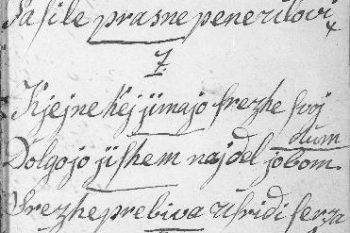 sa sile prasne penesilovi
7.
Kjejne kej jimajo srezhe svoj
dum
Dolgo jo jishem najdel jo bom
Srezhe prebiva u sridi serza